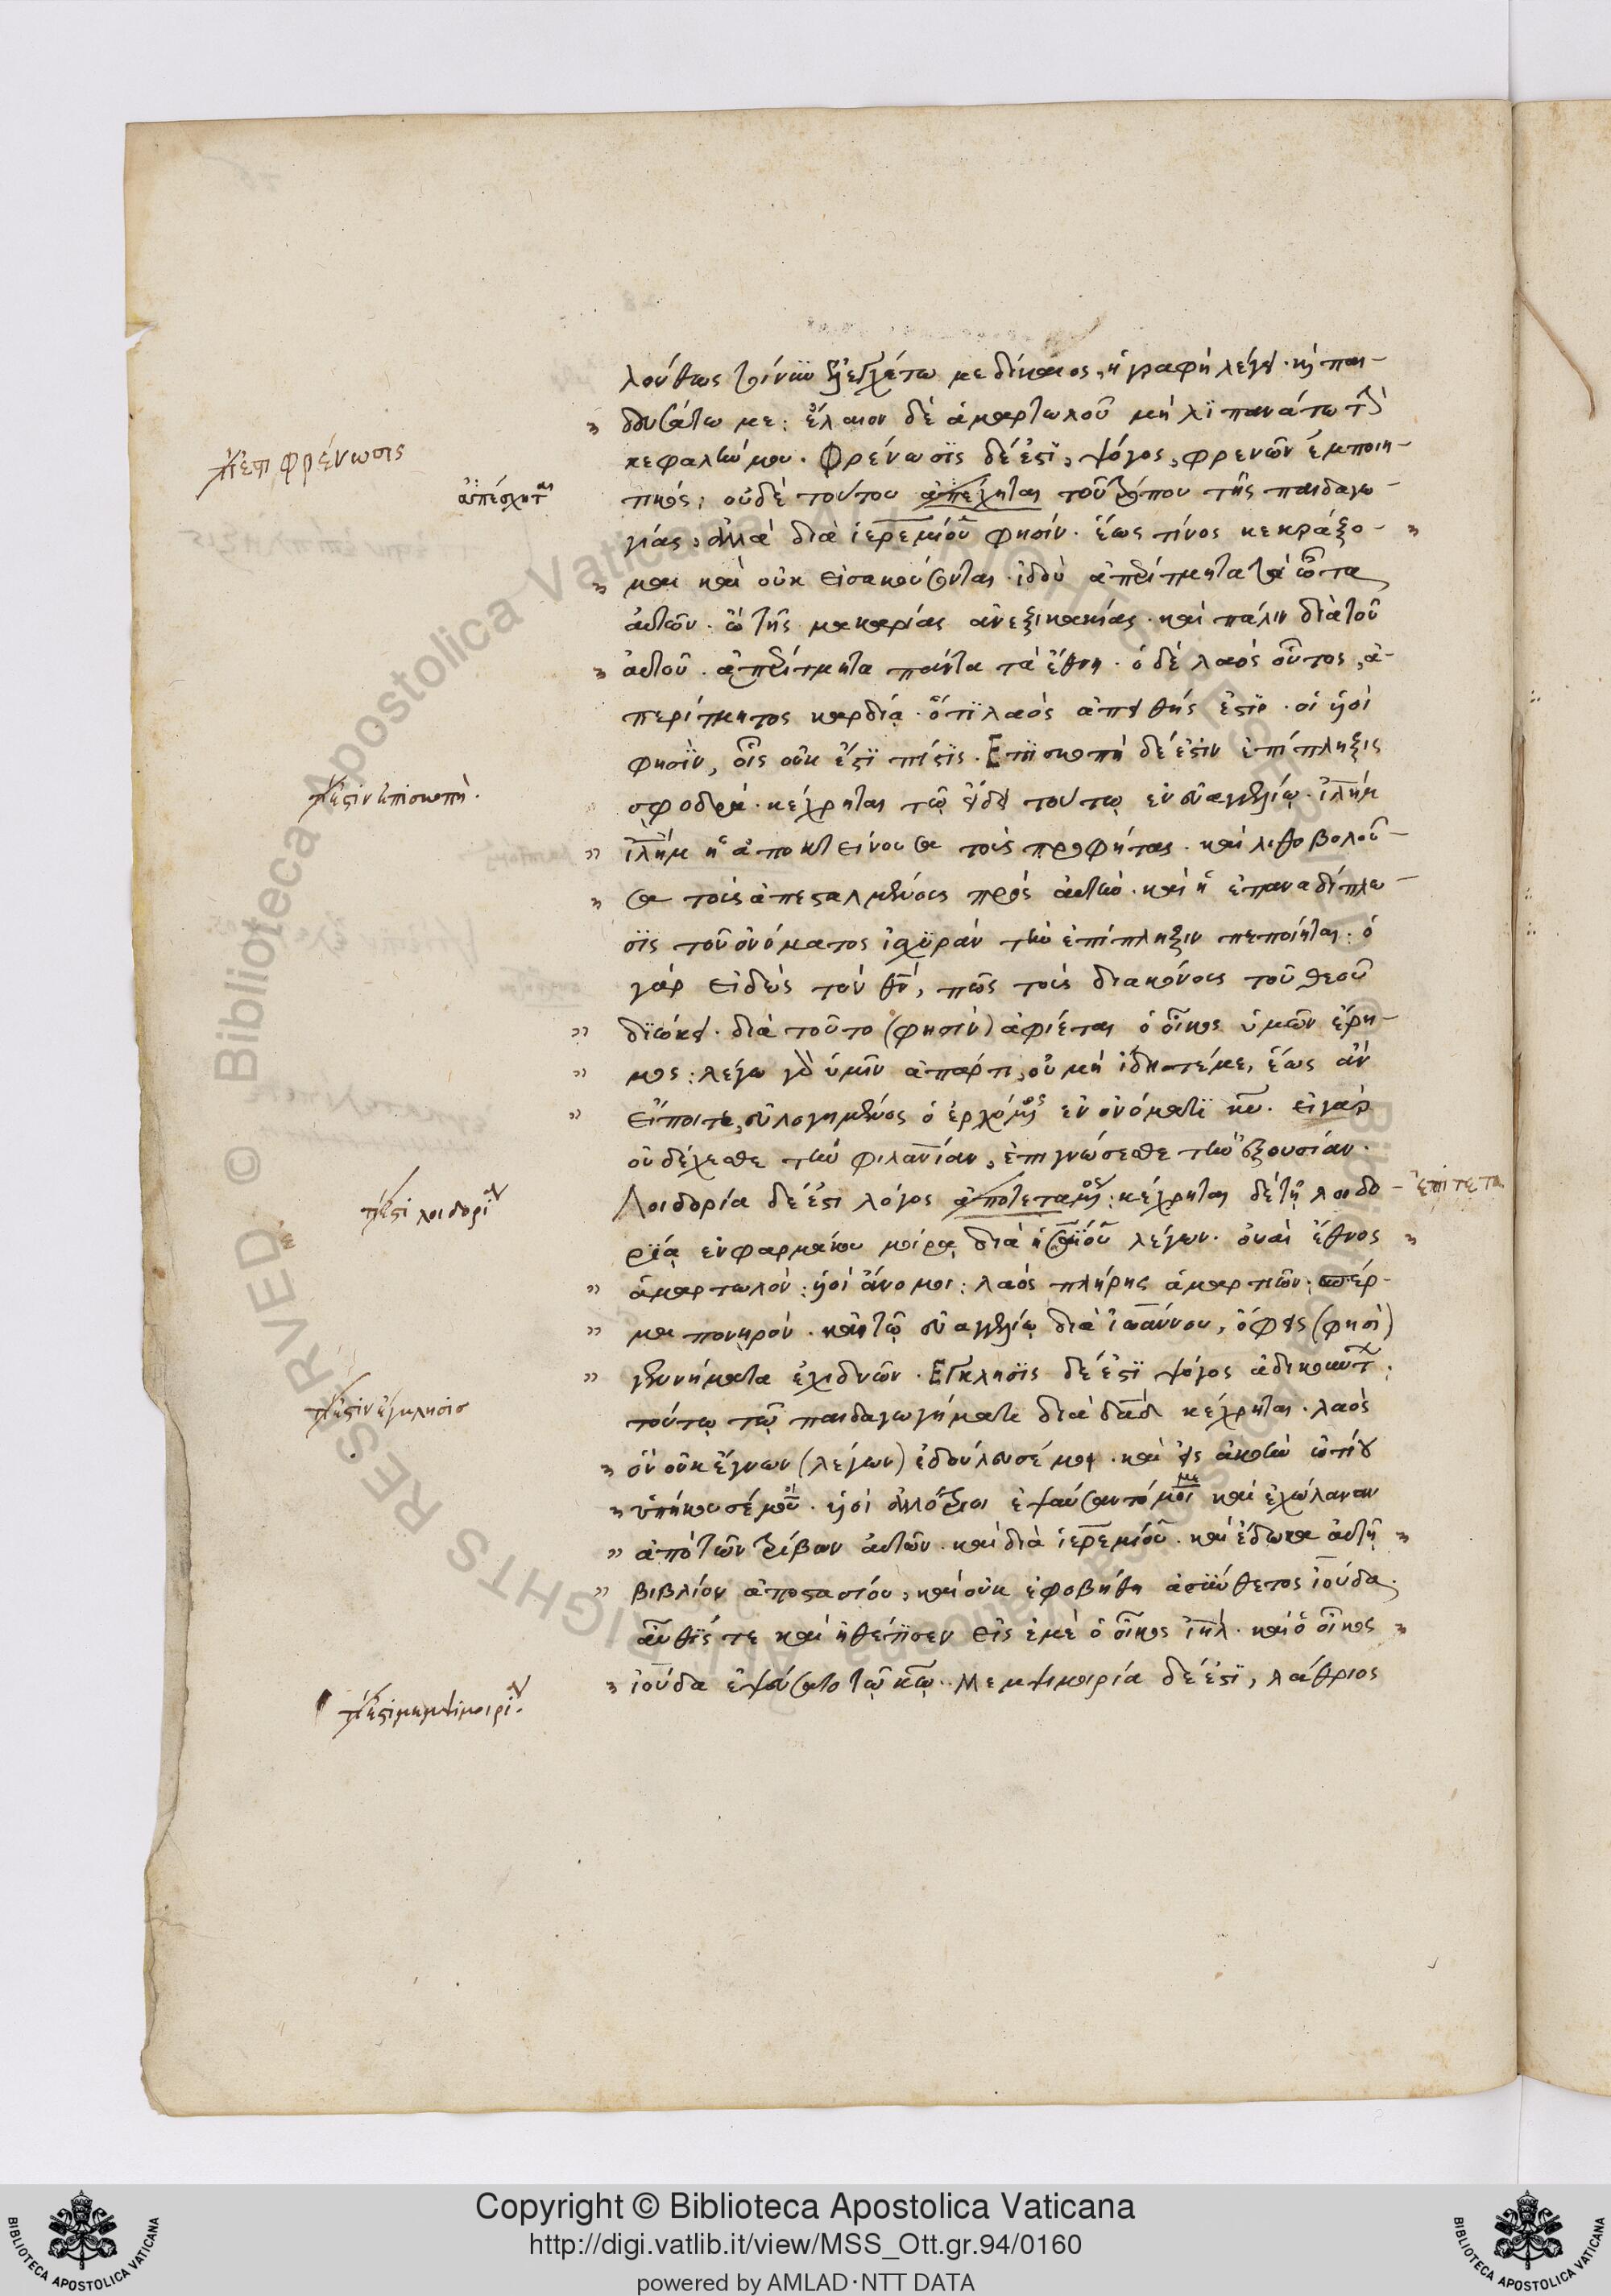 λούθως τοίνυν ἐλεγχέτω με δίκαιος, ἡ γραφὴ λέγει. καὶ παι-
δευσάτω με: ἔλαιον δὲ ἁμαρτωλοῦ μὴ λϊπανάτω τὴν
πῶς ἐστι φρένωσις
κεφαλήν μου. Φρένωσϊς δέ ἐστϊ, ψόγος, φρενῶν ἐμποιη-
ἀπέσχηται
τικός: οὐδὲ τούτου ἀπέχηται τοῦ τρόπου τῆς παιδαγω-
γίας, ἀλλὰ διὰ ἱερεμίου φησίν. ἕως τίνος κεκράξο-
μαι καὶ οὐκ εἰσακούσονται. ἰδοὺ ἀπερίτμητα τὰ ὦτα
αὐτῶν. ὢ τῆς μακαρίας ἀνεξικακίας. καὶ πάλιν διὰ τοῦ
αὐτοῦ. ἀπερίτμητα πάντα τὰ ἔθνη. ὁ δὲ λαὸς οὗτος, ἀ-
περίτμητος καρδίᾳ. ὅτϊ λαὸς ἀπειθής ἐστϊν. οἱ υἱοὶ
φησϊν, οἷς οὐκ ἔστϊ πίστϊς. Επϊσκοπὴ δέ ἐστιν ἐπίπληξις
τί ἐστιν ἐπισκοπή.
σφοδρά. κέχρηται τῷ εἴδει τούτῳ ἐν εὐαγγελίῳ. ἰλὴμ
ἰλὴμ ἡ ἀποκτείνουσα τοὺς προφήτας. καὶ λιθοβολοῦ-
σα τοὺς ἀπεσταλμένους πρὸς αὐτήν. καὶ ἡ ἐπαναδίπλω-
σϊς τοῦ ὀνόματος ἰσχϋρὰν τὴν ἐπίπληξιν πεποίηται: ὁ
γὰρ εἰδὼς τὸν θν, πῶς τοὺς διακόνους τοῦ θεοῦ
δϊώκει. διὰ τοῦτο (φησὶν) ἀφίεται ὁ οἶκος ὑμῶν ἔρη-
μος: λέγω γὰρ ὑμῖν ἀπάρτι, οὐ μὴ ἴδητέ με, ἕως ἂν
εἴποιτε, εὐλογημένος ὁ ἐρχόμενος ἐν ὀνόματϊ κυ. εἰ γὰρ
οὐ δέχεσθε τὴν φιλανίαν, ἐπιγνώσεσθε τὴν ἐξουσίαν.
τί ἐστι λοιδορία
Λοιδορία δέ ἐστι λόγος ἀποτεταμένος: κέχρηται δὲ τῇ λοιδο- ἐπιτετα
ρϊᾳ ἐν φαρμάκου μοίρᾳ διὰ ἡσαΐου λέγων. οὐαὶ ἔθνος
ἁμαρτωλόν: υἱοὶ ἄνομοι: λαὸς πλήρης ἁμαρτιῶν: σπέρ-
μα πονηρόν. κἀν τῷ εὐαγγελίῳ διὰ ἰωάννου, ὄφεις (φησὶ)
γεννήματα ἐχιδνῶν. Εγκλησϊς δέ ἐστϊ ψόγος ἀδικούντων:
τί ἐστιν ἔγκλησις
τούτῳ τῷ παιδαγωγήματι διὰ δαδ κέχρηται. λαὸς
ὃν οὐκ ἔγνων (λέγων) ἐδούλευσέ μοι. καὶ εἰς ἀκοὴν ὠτίου
ὑπήκουσέ μου. υἱοὶ ἀλλότριοι ἐψεύσαντό μοι με καὶ ἐχώλαναν
ἀπὸ τῶν τρίβων αὐτῶν. καὶ διὰ ἱερεμίου. καὶ ἔδωκα αὐτῇ
βιβλίον ἀποστασίου, καὶ οὐκ ἐφοβήθη ἀσύνθετος ἰούδα.
αὖθίς τε καὶ ἠθέτϊσεν εἰς ἐμὲ ὁ οἶκος ἰηλ. καὶ ὁ οἶκος
ἰούδα ἐψεύσατο τῷ κω. Μεμψιμοιρία δέ ἐστϊ, λάθριος
τί ἐστι μεμψιμοιρία.
Copyright © Biblioteca Apostolica Vaticana
http://digi.vatlib.it/view/MSS_Ott.gr.94/0160
powered by AMLAD·NTT DATA